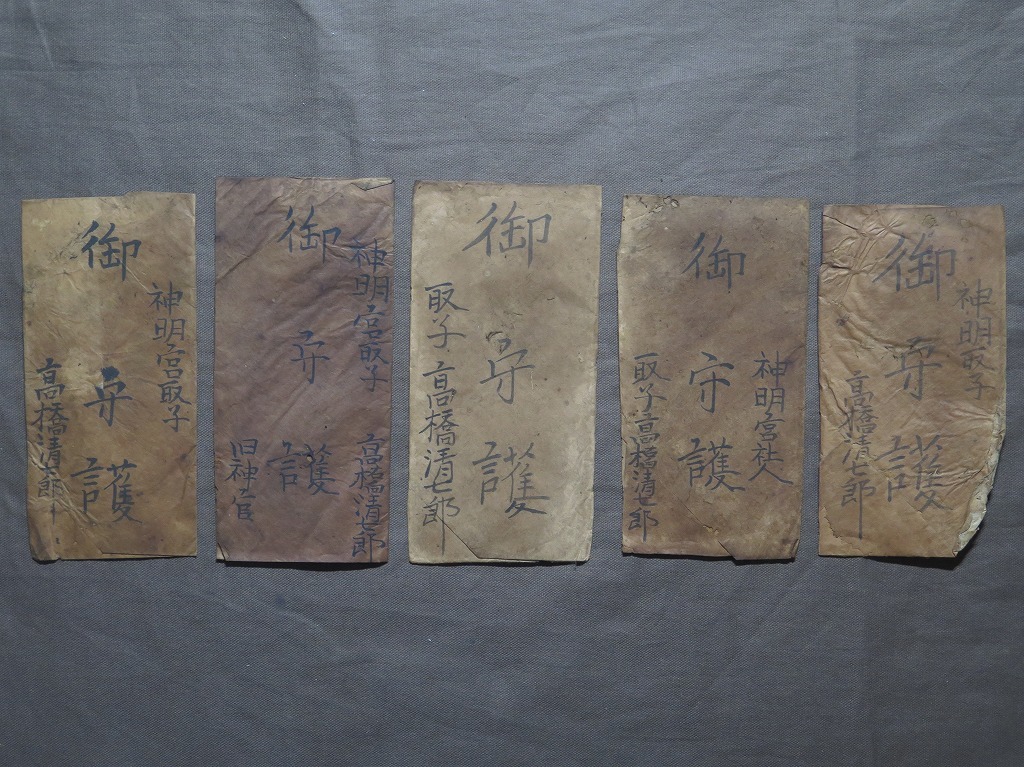 御守護
神明宮取子
高橋清七郎
御守護
神明宮取子
高橋清七郎
旧神官
御守護
取子高橋清七郎
御守護
神明宮社人
取子高橋清七郎
御守護
神明取子
高橋清七郎